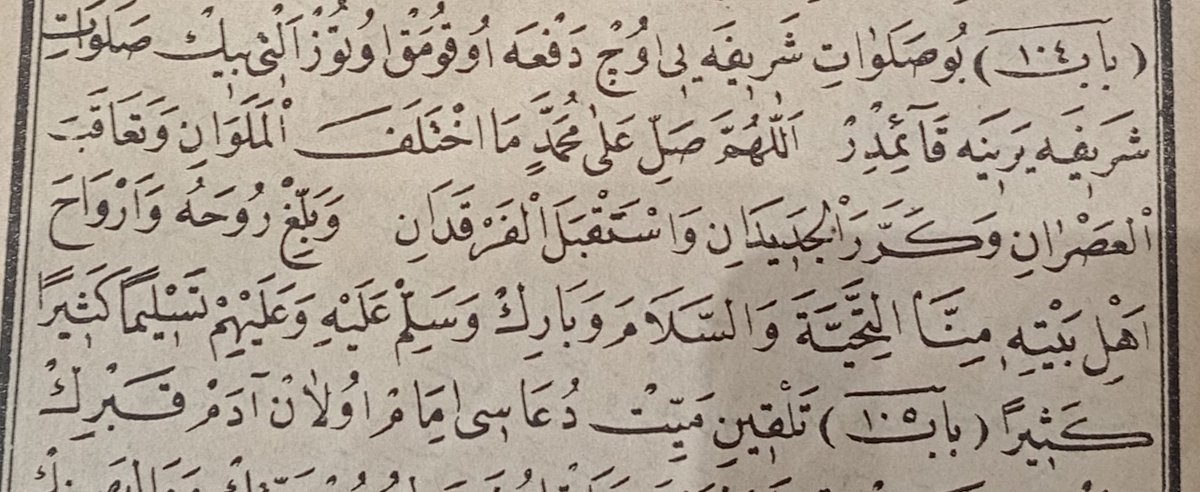 (باب ١٠٤) بُو صَلَوٰاتِ شَرِيفَه يِى اُوُچْ دَفْعَه اُوقُومَقْ اُوتُوزْ اَلْتِى بِيكْ صَلَوَاتِ
شَرِيفَه يَرِينَه قَآئِمْدِرْ اَللّٰهُمَّ صَلِّ عَلٰى مُحَمَّدٍ مَا اخْتَلَفَ الْمَلَوَانِ وَتَعَاقَبَ
الْعَصْرَانِ وَكَرَّرَ الْجَدِيدَانِ وَاسْتَقْبَلَ الْفَرْقَدَانِ وَبَلِّغْ رُوحَهُ وَاَرْوَاحَ
اَهْلِ بَيْتِهِ مِنَّا التَّحِيَّةَ وَالسَّلَامَ وَبَارِكْ وَسَلِّمْ عَلَيْهِ وَعَلَيْهِمْ تَسْلِيمًا كَثِيرًا
كَثِيرًا (باب ١٠٥) تَلْقِينِ مَيِّتْ دُعَاسِى اِمَامْ اُولَانْ آدَمْ قَبْرِكْ